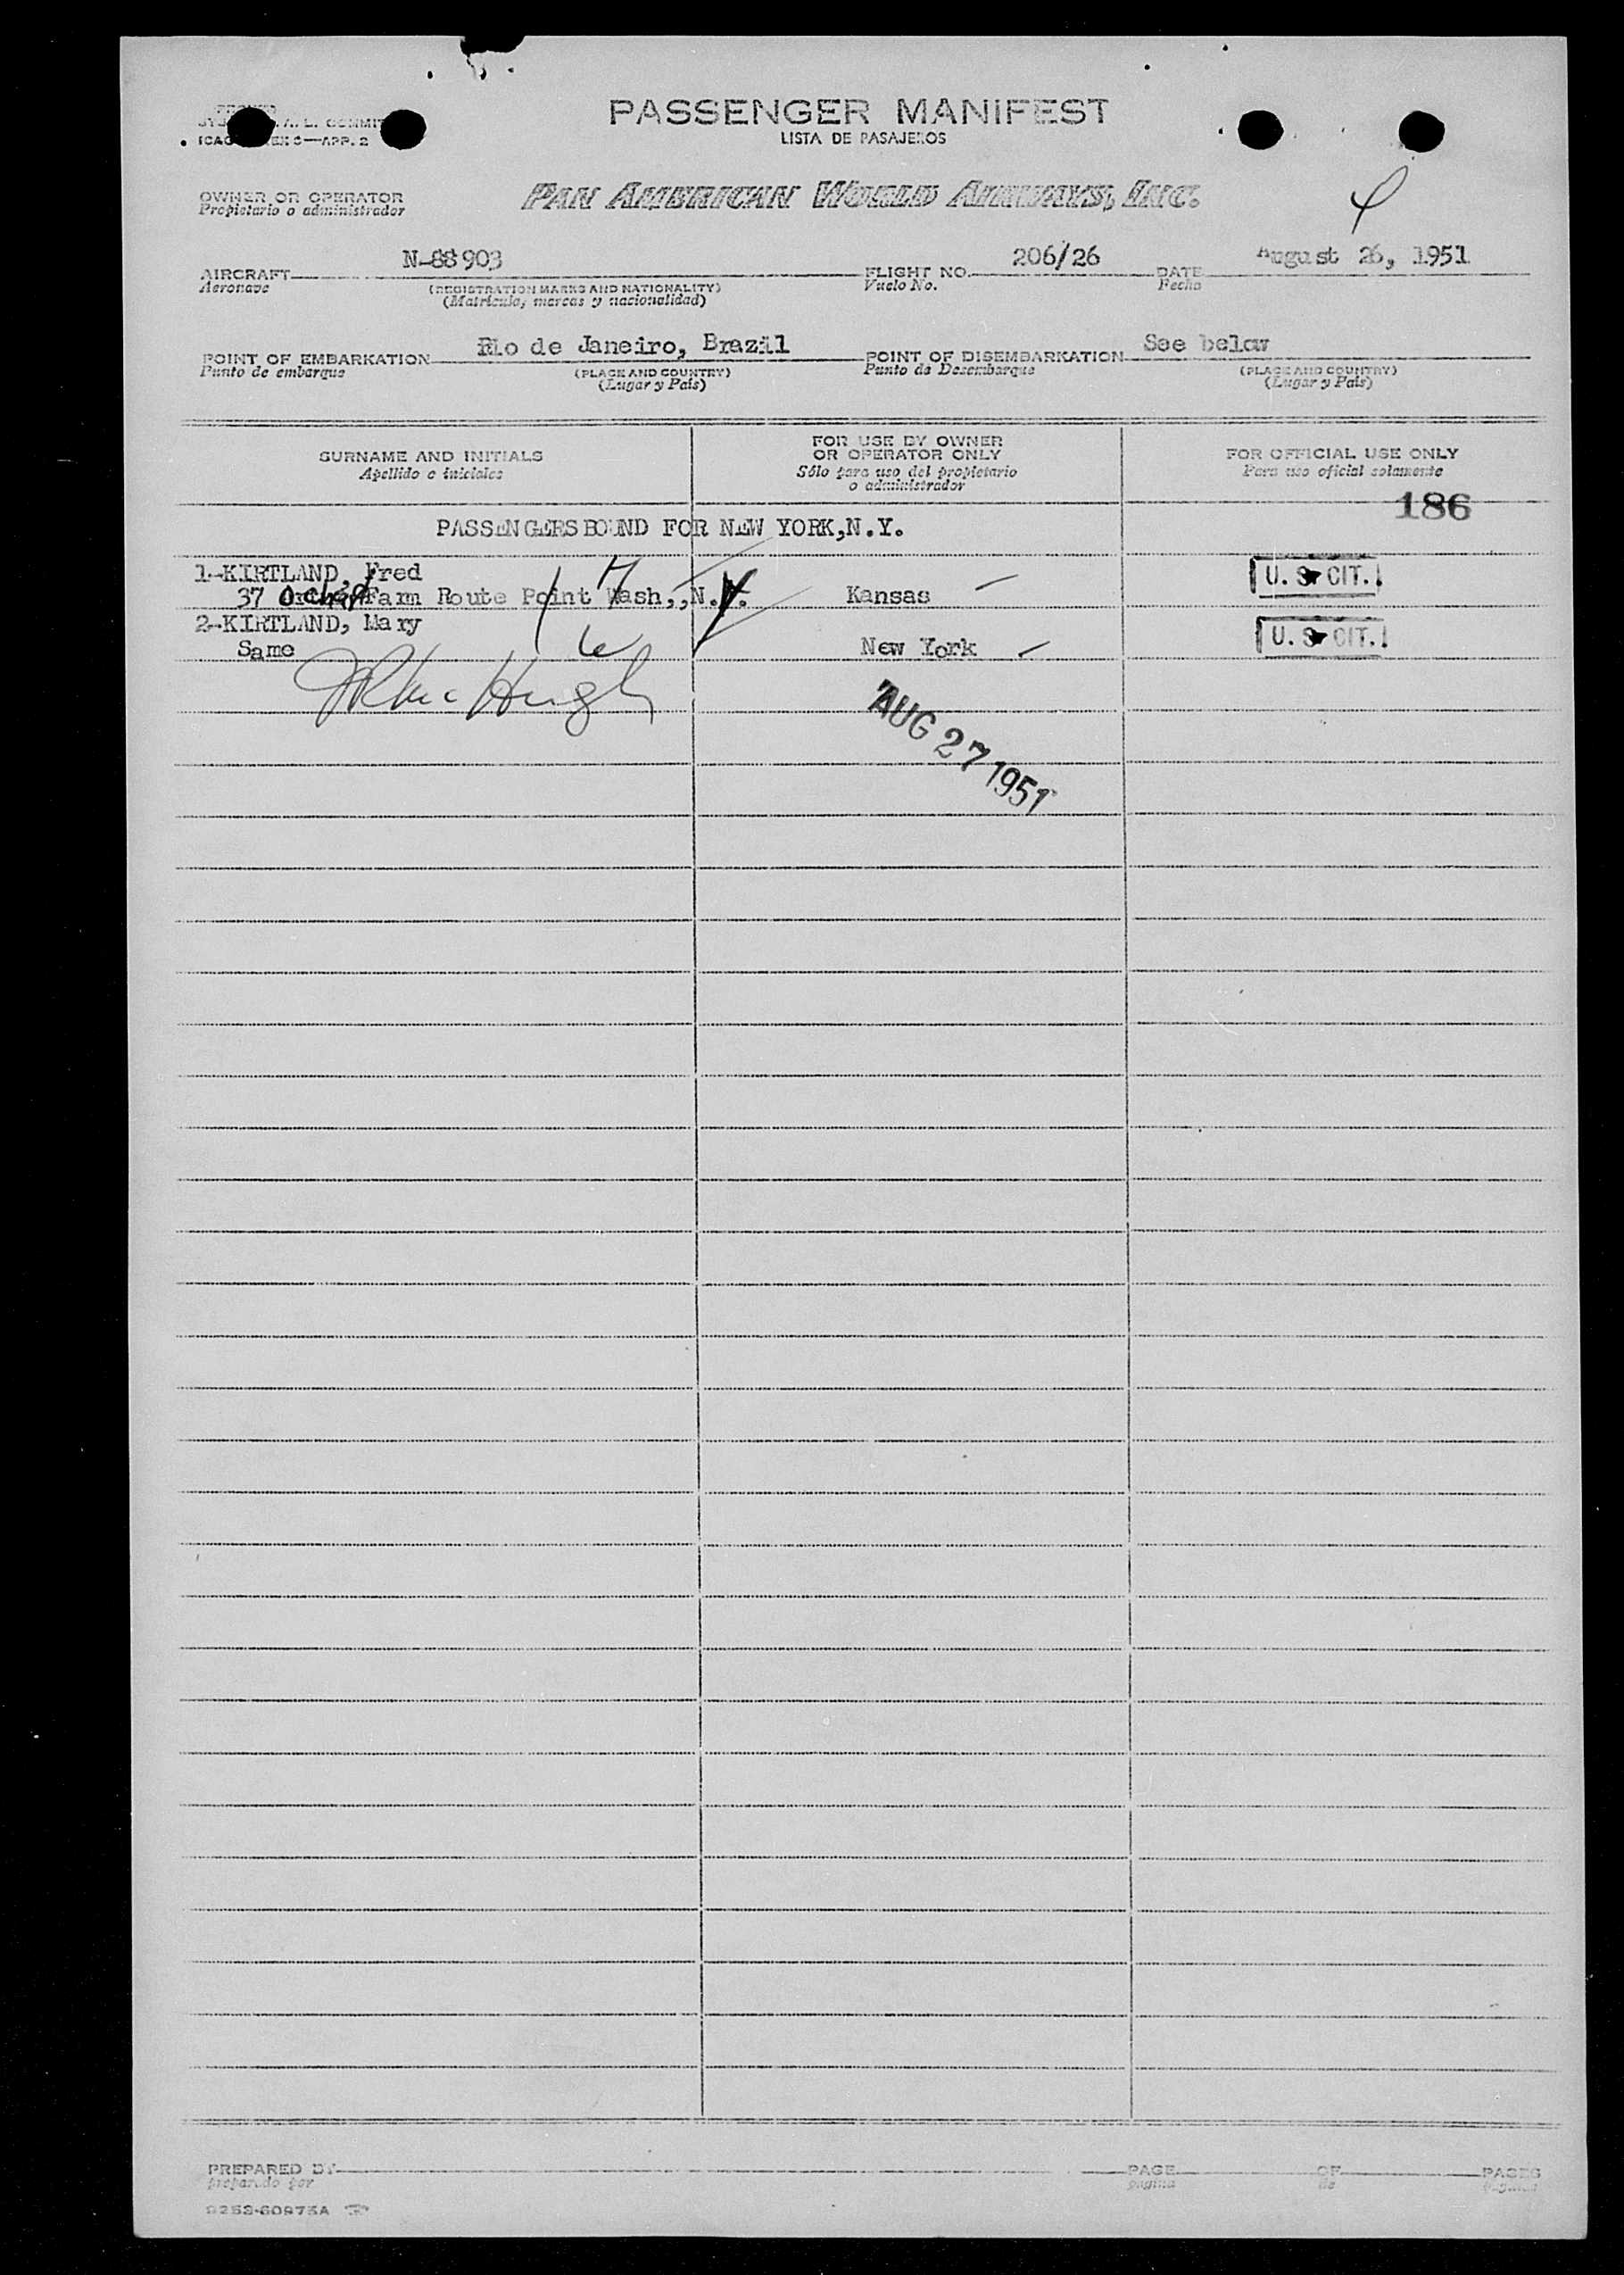 PASSENGER MANIFEST
LISTA DE PASAJEROS
ICAO ANNEX 9—APP. 2
OWNER OR OPERATOR
Propietario o administrador
PAN AMERICAN WORLD AIRWAYS, INC.
AIRCRAFT N-88903 FLIGHT NO. 206/26 DATE August 26, 1951
Aeronave (REGISTRATION MARKS AND NATIONALITY) Vuelo No. Fecha
(Matricula, marcas y nacionalidad)
POINT OF EMBARKATION Rio de Janeiro, Brazil POINT OF DISEMBARKATION See below
Punto de embarque (PLACE AND COUNTRY) Punto de Desembarque (PLACE AND COUNTRY)
(Lugar y País) (Lugar y País)
SURNAME AND INITIALS FOR USE BY OWNER OR OPERATOR ONLY FOR OFFICIAL USE ONLY
Apellido e iniciales Sólo para uso del propietario o administrador Para uso oficial solamente
186
PASSENGERS BOUND FOR NEW YORK,N.Y.
1-KIRTLAND, Fred U. S. CIT.
37 Farm Route Point Wash,,N.Y. Kansas
2-KIRTLAND, Mary U. S. CIT.
Same New York
AUG 27 1951
PREPARED BY PAGE OF PAGES
preparado por pagina de paginas